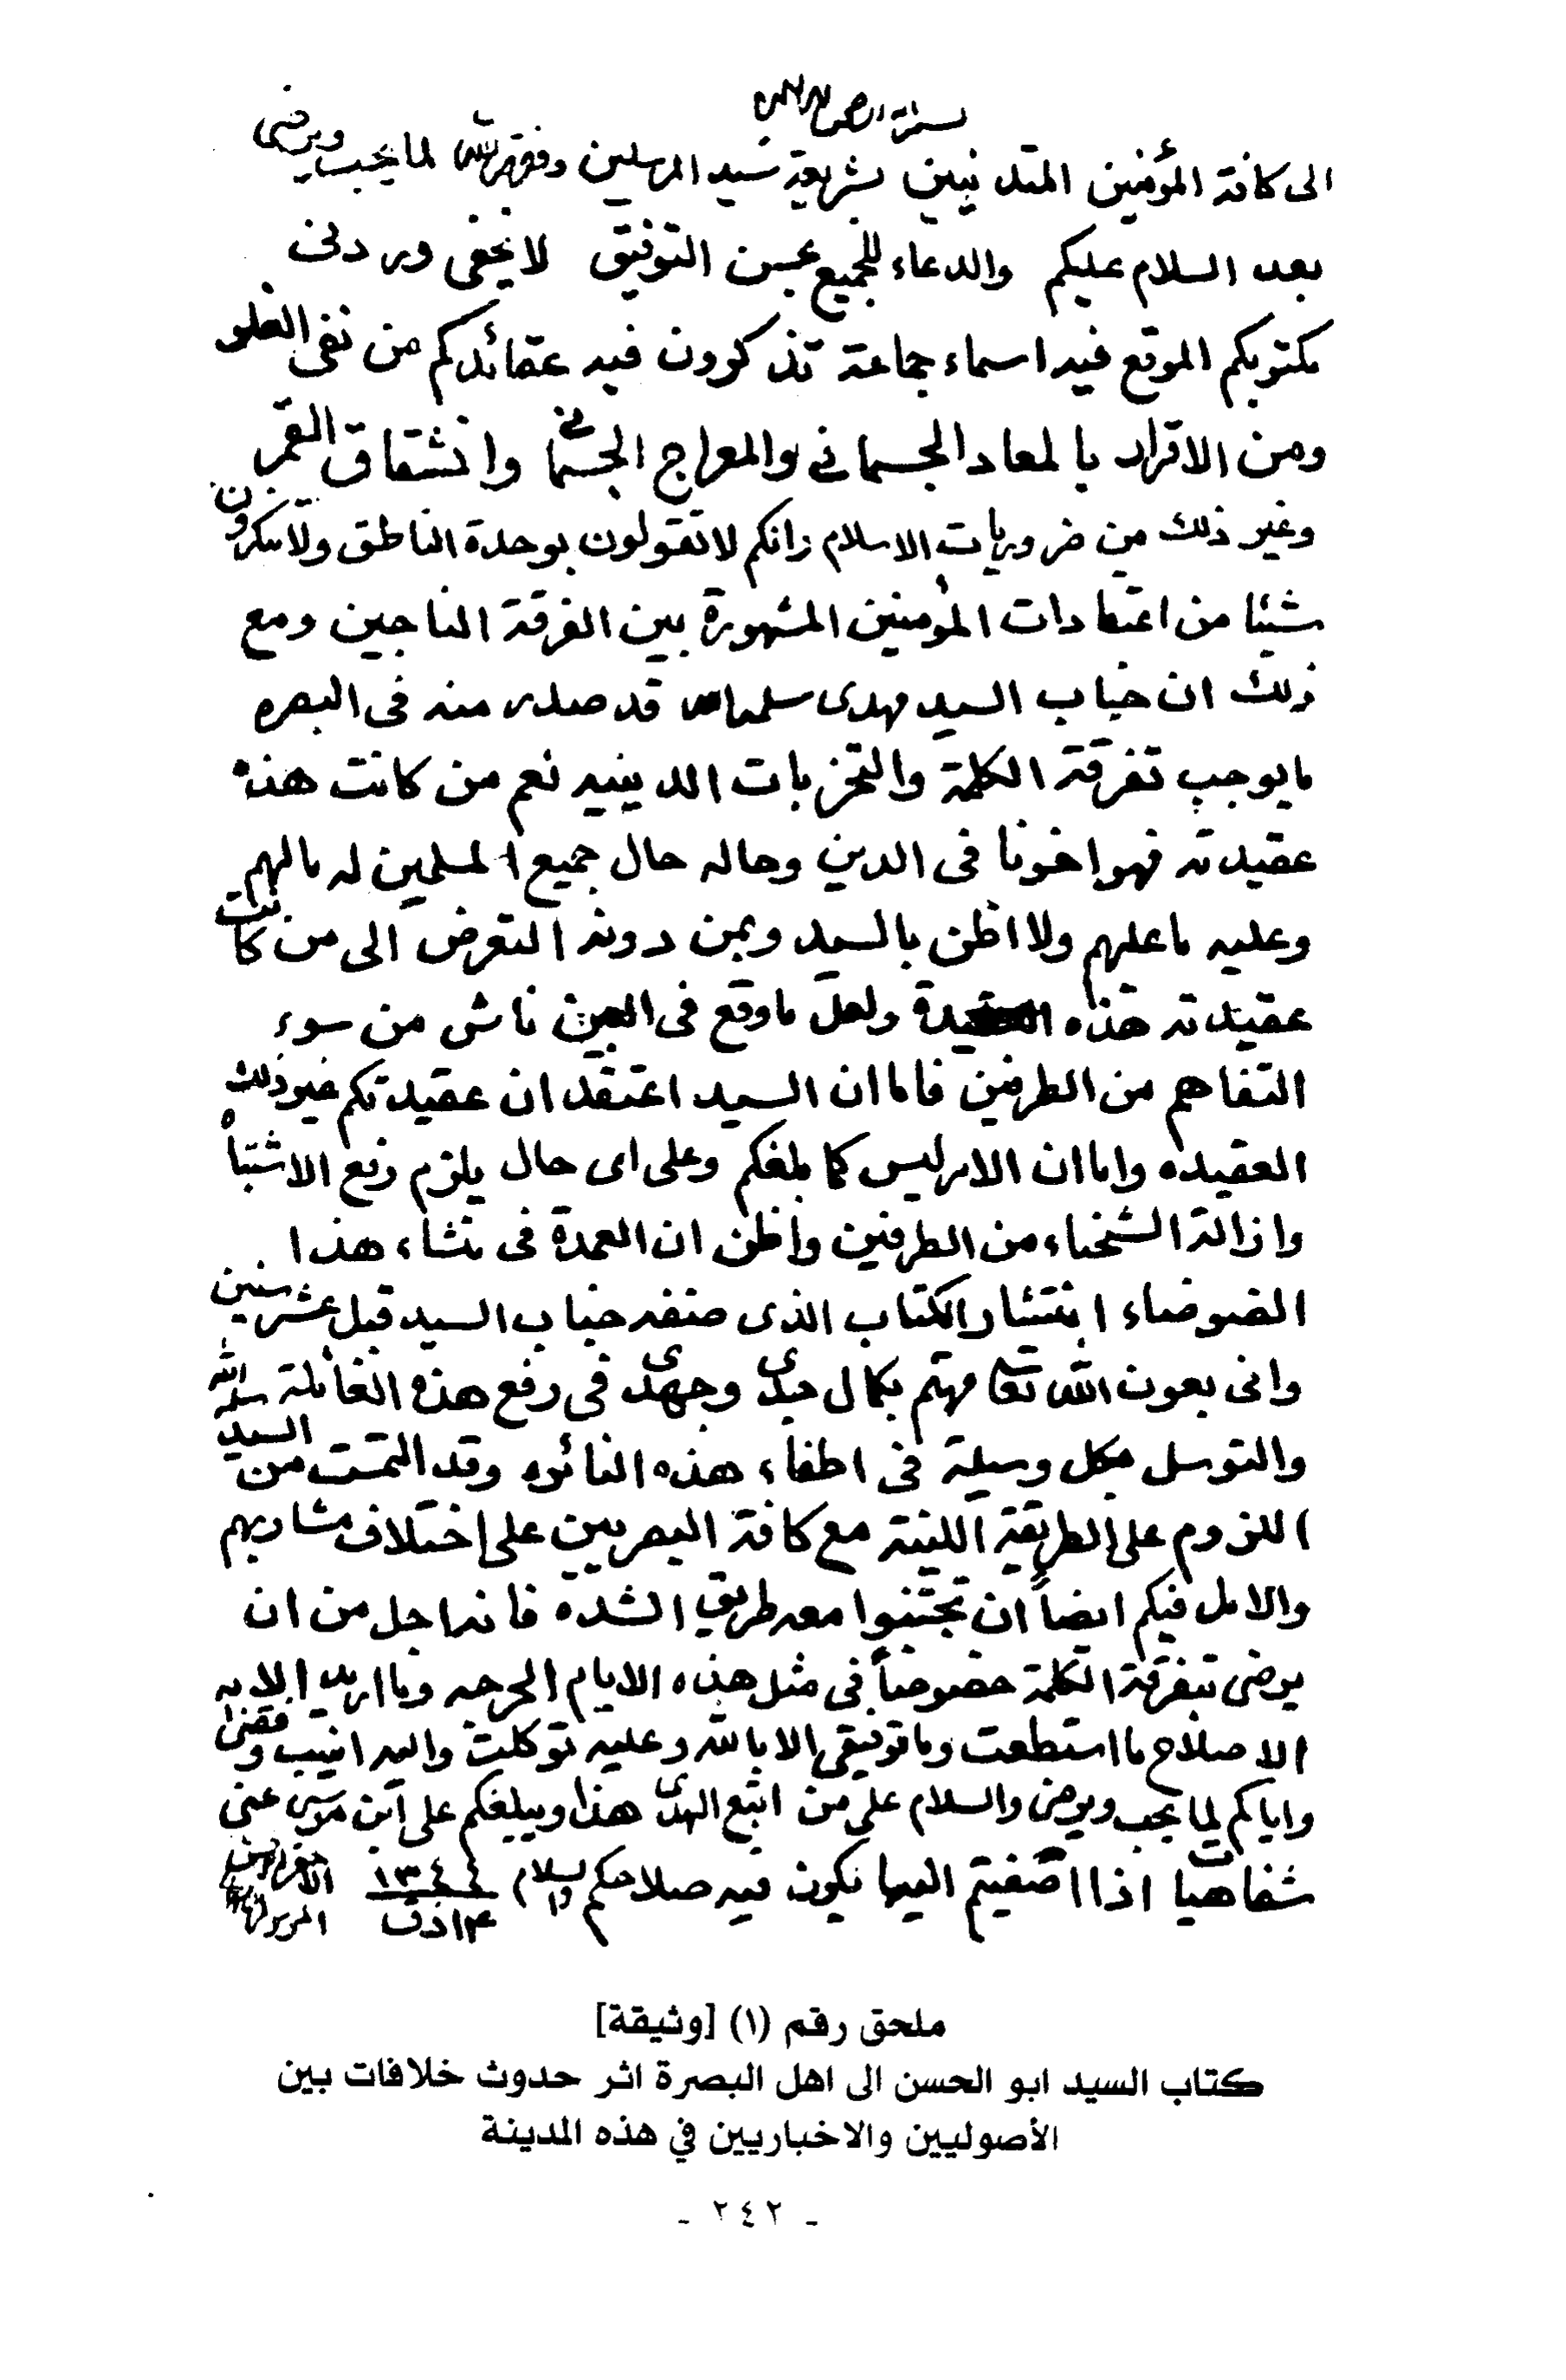 بسم الله الرحمن الرحيم
الى كافة المؤمنين المتدينين بشريعة سيد المرسلين وفقهم الله لما يحب ويرضى
بعد السلام عليكم والدعاء للجميع بحسن التوفيق لا يخفى ورد لي
مكتوبكم الموقع فيه اسماء جماعة تذكرون فيه عقائدكم من نفي الغلو
ومن الاقرار بالمعاد الجسماني والمعراج الجسماني وانشقاق القمر
وغير ذلك من ضروريات الاسلام وانكم لا تقولون بوحدة الناطق ولا تنكرون
شيئا من اعتقادات المؤمنين المشهورة بين الفرقة الناجين ومع
ذلك ان جناب السيد مهدى سلمه الله قد صدر منه فى البصره
ما يوجب تفرقة الكلمة والتحزبات الدينيه نعم من كانت هذه
عقيدته فهو اخونا فى الدين وحاله حال جميع المسلمين له ما لهم
وعليه ما عليهم ولا اظن بالسيد وبمن دونه التعرض الى من كانت
عقيدته هذه العقيدة ولعل ما وقع فى البين ناش من سوء
التفاهم من الطرفين فاما ان السيد اعتقد ان عقيدتكم غير ذلك
العقيده واما ان الامر ليس كما بلغكم وعلى اى حال يلزم رفع الاشتباه
وازالة الشحناء من الطرفين واظن ان العمدة فى منشاء هذا
الضوضاء انتشار الكتاب الذى صنفه جناب السيد قبل عشر سنين
وانى بعون الله تعالى مهتم بكمال جدى وجهدى فى رفع هذه الغائلة
والتوسل بكل وسيلة فى اطفاء هذه النائره وقد التمست من السيد سلمه الله
اللزوم على الطريقة اللينة مع كافة البصريين على اختلاف مشاربهم
والامل فيكم ايضاً ان تجتنبوا معه طريق الشده فانه اجل من ان
يرضى بتفرقة الكلمة خصوصاً فى مثل هذه الايام الحرجه وما اريد
الا الاصلاح ما استطعت وما توفيقى الا بالله وعليه توكلت واليه انيب وفقنا
واياكم لما يحب ويرضى والسلام على من اتبع الهدى هذا ويبلغكم على ابن موسى عنى
شفاهيات اذا اصغيتم اليها يكون فيه صلاحكم والسلام ١٣٤٤
١٤ ذق
ملحق رقم (١) [وثيقة]
كتاب السيد ابو الحسن الى اهل البصرة اثر حدوث خلافات بين
الأصوليين والاخباريين في هذه المدينة
- ٢٤٢ -